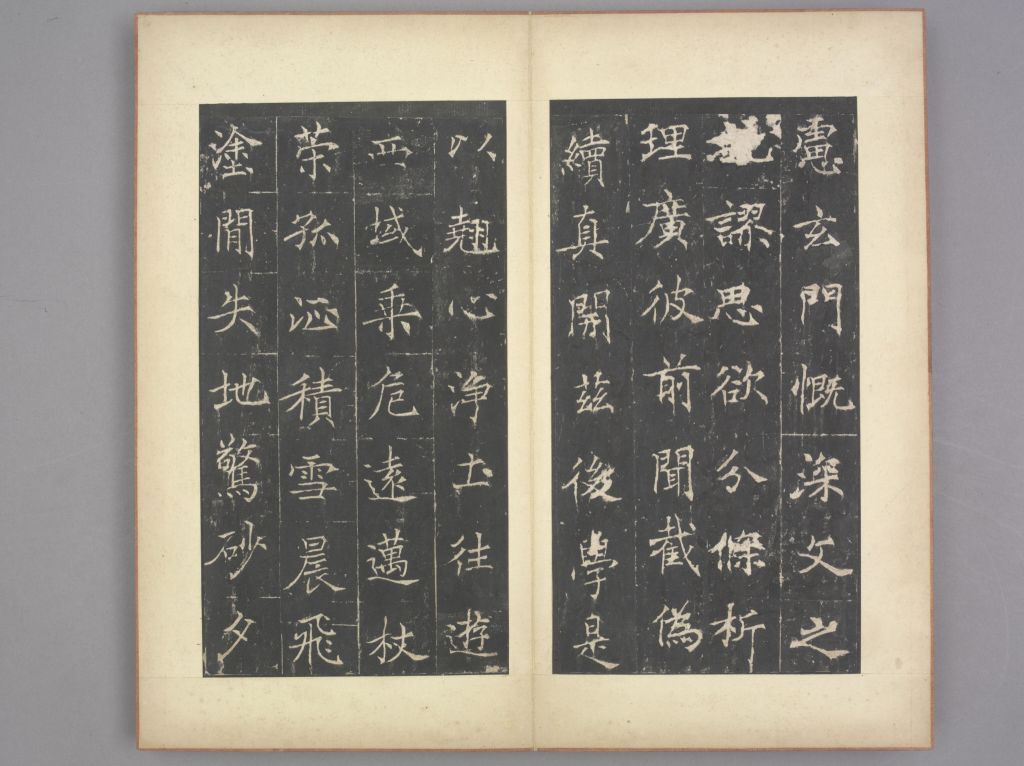 慮玄門慨深文之
謬思欲分條析
理廣彼前聞截偽
續真開茲後學是
以翹心淨土往遊
西域乘危遠邁杖
策孤征積雪晨飛
塗間失地驚砂夕